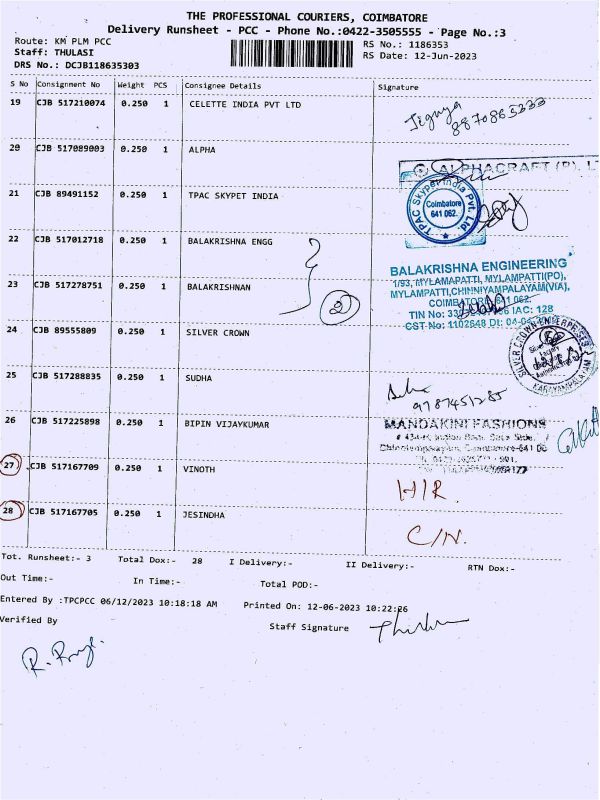 THE PROFESSIONAL COURIERS, COIMBATORE
Delivery Runsheet - PCC - Phone No.:0422-3505555 - Page No.:3
Route: KM PLM PCC
RS No.: 1186353
Staff: THULASI
RS Date: 12-Jun-2023
DRS No.: DCJB118635303
S No Consignment No Weight PCS Consignee Details Signature
19 CJB 517210074 0.250 1 CELETTE INDIA PVT LTD
Jegnya
8870865333
20 CJB 517089003 0.250 1 ALPHA
ALPHACRAFT (P). LT
21 CJB 89491152 0.250 1 TPAC SKYPET INDIA
TPAC Skypet India Pvt. Ltd.
Coimbatore
641 062.
22 CJB 517012718 0.250 1 BALAKRISHNA ENGG
BALAKRISHNA ENGINEERING
1/93, MYLAMAPATTI, MYLAMPATTI(PO),
MYLAMPATTI,CHINNIYAMPALAYAM(VIA),
COIMBATORE 641 062.
TIN No: IAC: 128
CST No: 1102648 DI:
23 CJB 517278751 0.250 1 BALAKRISHNAN
2
24 CJB 89555809 0.250 1 SILVER CROWN
SILVER CROWN ENTERPRISES
KARAYAMPALAYAM
25 CJB 517288835 0.250 1 SUDHA
9787451285
26 CJB 517225898 0.250 1 BIPIN VIJAYKUMAR
MANDAKINI FASHIONS
27 CJB 517167709 0.250 1 VINOTH
H/R.
28 CJB 517167705 0.250 1 JESINDHA
C/N.
Tot. Runsheet:- 3 Total Dox:- 28 I Delivery:- II Delivery:- RTN Dox:-
Out Time:- In Time:- Total POD:-
Entered By :TPCPCC 06/12/2023 10:18:18 AM Printed On: 12-06-2023 10:22:26
Verified By Staff Signature